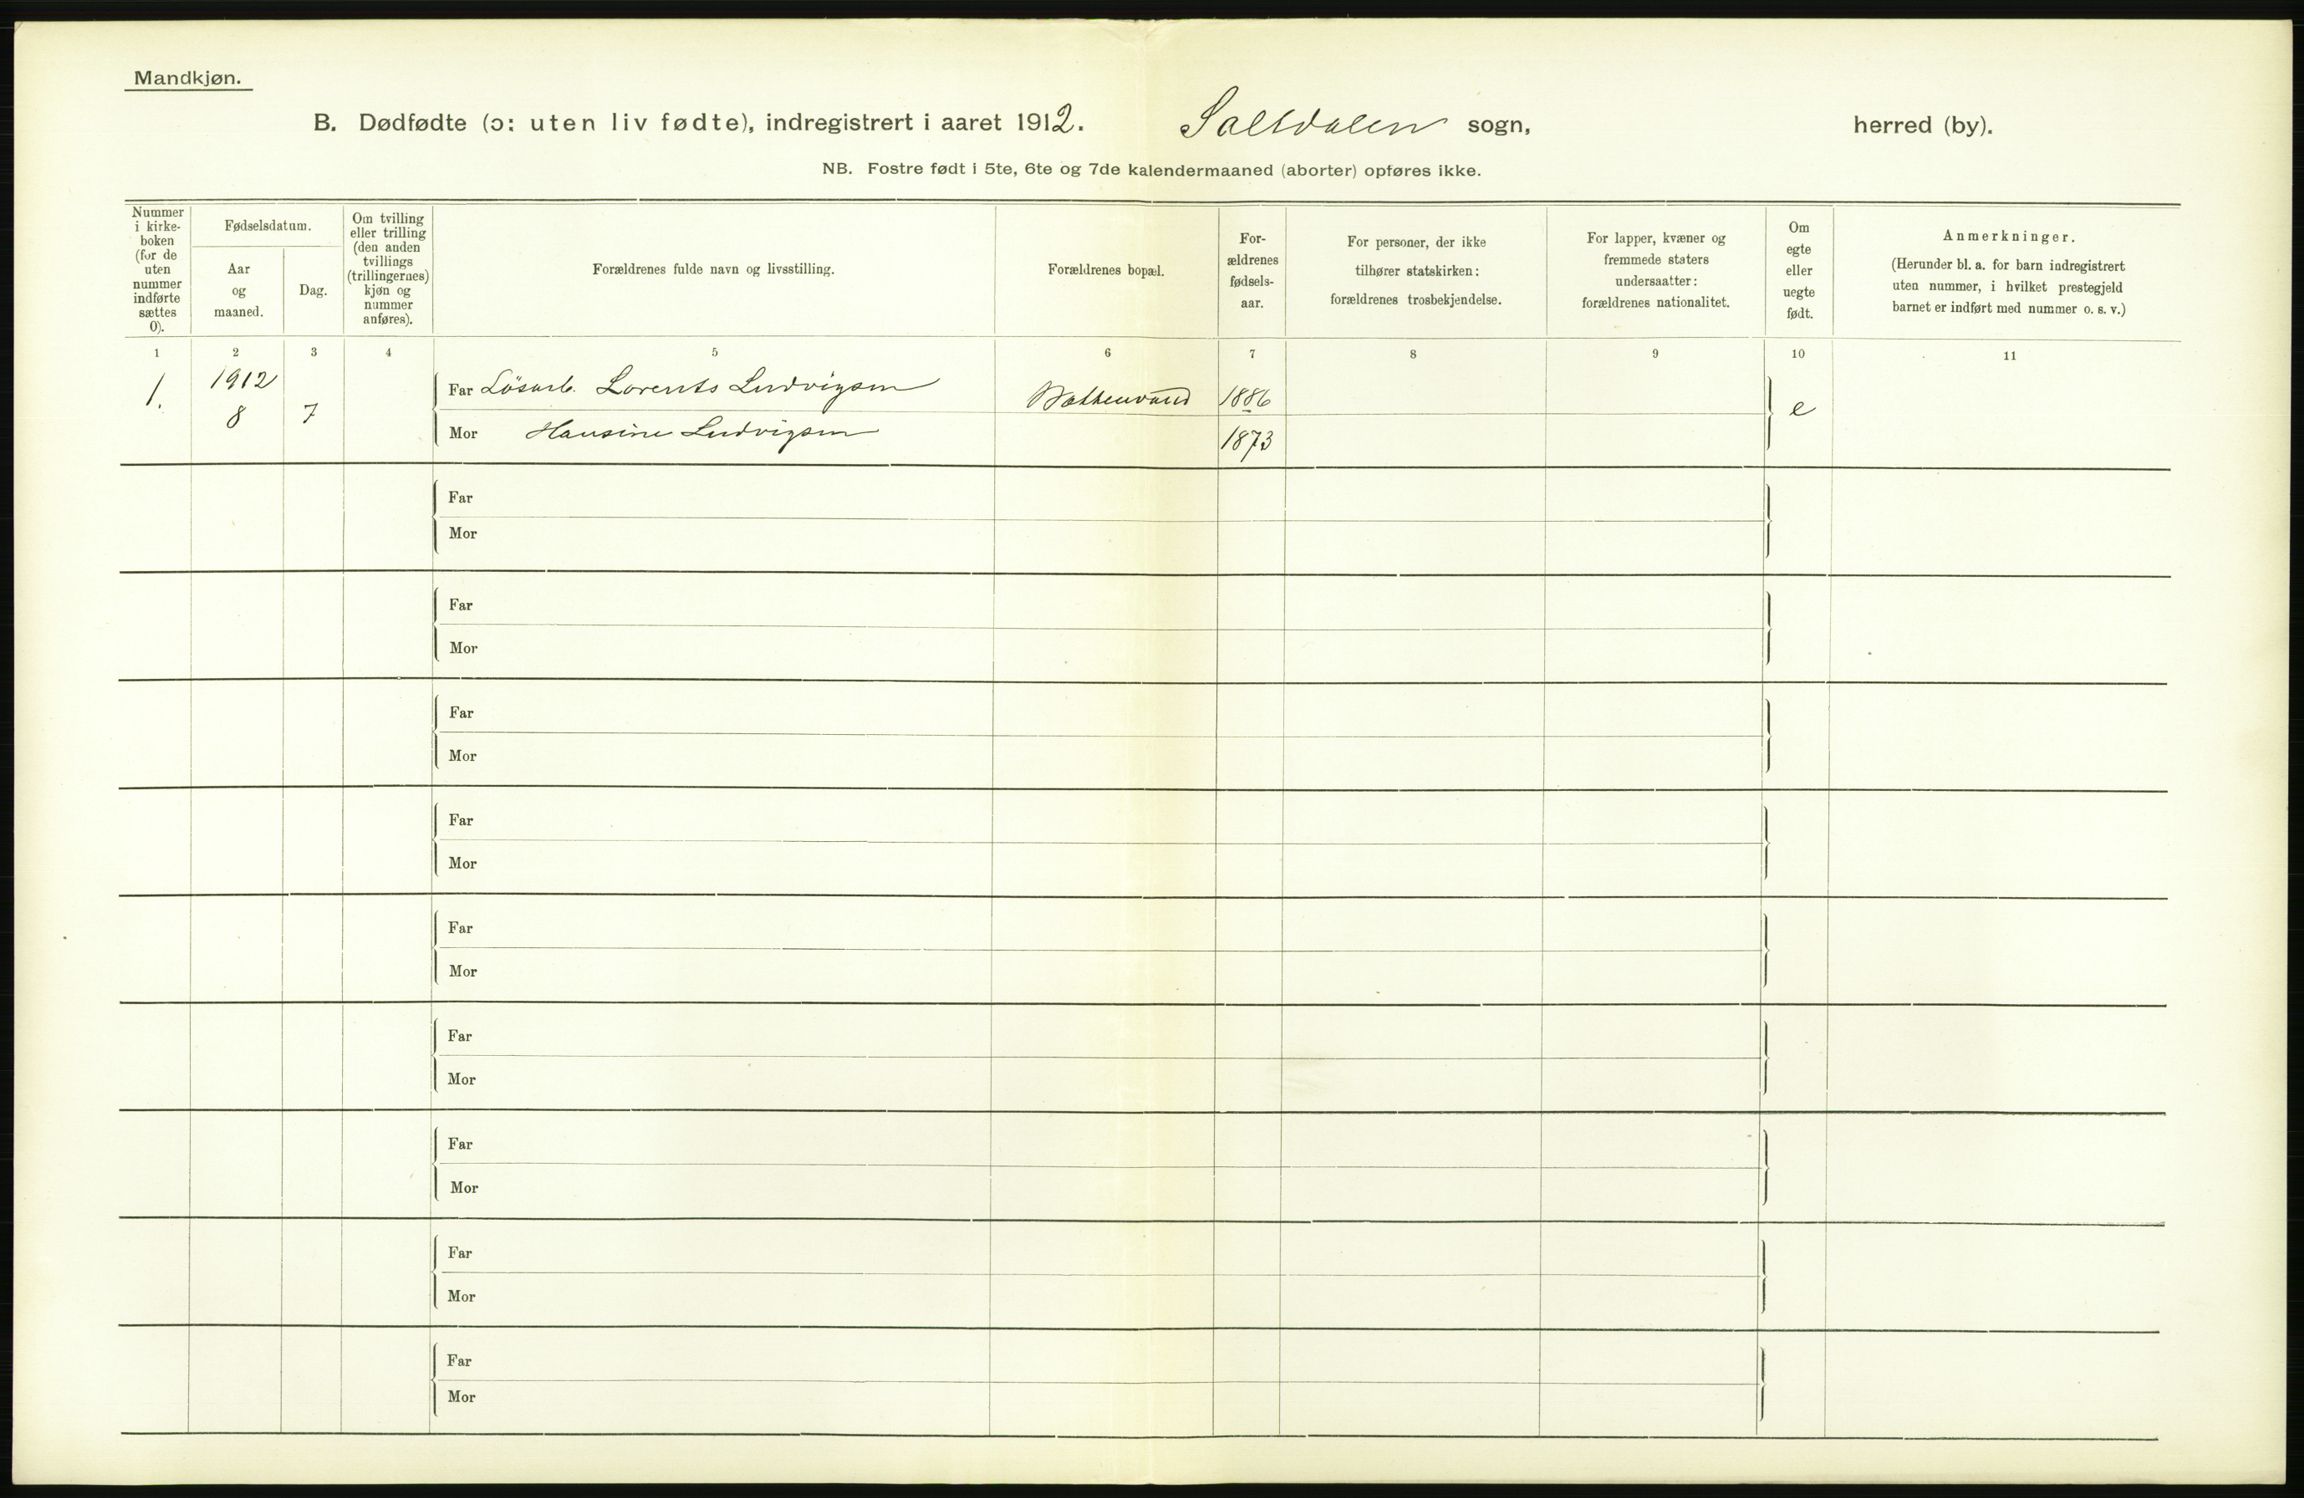 Mandkjøn.
B. Dødfødte (ɔ: uten liv fødte), indregistrert i aaret 1912. Saltdalen sogn, herred (by).
NB. Fostre født i 5te, 6te og 7de kalendermaaned (aborter) opføres ikke.
Nummer
i kirke-
boken
(for de
uten
nummer
indførte
sættes
0).
Fødselsdatum.
Aar
og
maaned.
Dag.
Om tvilling
eller trilling
(den anden
tvillings
(trillingernes)
kjøn og
nummer
anføres).
Forældrenes fulde navn og livsstilling.
Forældrenes bopæl.
For-
ældrenes
fødsels-
aar.
For personer, der ikke
tilhører statskirken:
forældrenes trosbekjendelse.
For lapper, kvæner og
fremmede staters
undersaatter:
forældrenes nationalitet.
Om
egte
eller
uegte
født.
Anmerkninger.
(Herunder bl. a. for barn indregistrert
uten nummer, i hvilket prestegjeld
barnet er indført med nummer o. s. v.)
1 2 3 4 5 6 7 8 9 10 11
1. 1912
8 7
Far Løsarb. Lorents Ludvigsen 1886
e
Mor Hansine Ludvigsen 1873
Far
Mor
Far
Mor
Far
Mor
Far
Mor
Far
Mor
Far
Mor
Far
Mor
Far
Mor
Far
Mor